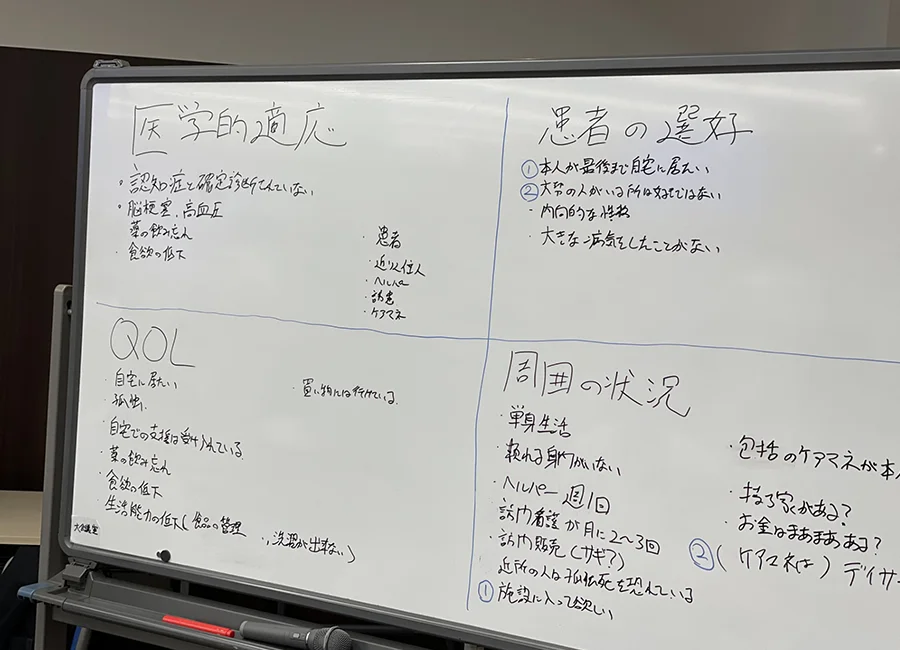 医学的適応
・認知症と確定診断されていない
・脳梗塞、高血圧
薬の飲み忘れ
・食欲の低下
・患者
・近リン住人
・ヘルパー
・訪看
・ケアマネ
患者の選好
①本人が最後まで自宅に居たい
②大勢の人がいる所は好きではない
・内向的な性格
・大きな病気をしたことがない
QOL
・自宅に居たい
・孤独
・自宅での支援は受け入れている
・薬の飲み忘れ
・食欲の低下
生活能力の低下(食品の管理、洗濯が出来ない)
・買い物には行けている
大会議室
周囲の状況
・単身生活
・頼れる身内がいない
・ヘルパー週1回
訪問看護が月に2〜3回
・訪問販売(サギ?)
近所の人は孤独死を恐れている
①施設に入って欲しい
・包括のケアマネが本
・持ち家がある?
・お金はまあまあある?
②(ケアマネは)デイサ